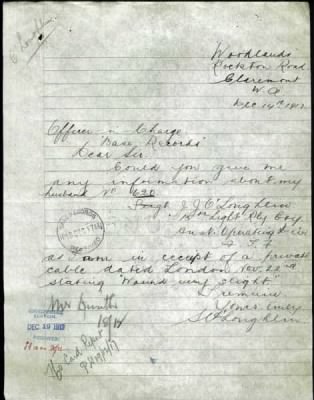 Woodlands
Rockton Road
Claremont
W.A
Dec 14th 1917
Officer in Charge
"Base Records"
Dear Sir.
Could you give me
any information about my
husband No
Sergt J. J. O'Loughlin
Light Rly Coy
Aust Operating
A.I.F
as I am in receipt of a private
cable dated London Nov. 22nd
stating "Wound very slight"
I remain
Yours truly
O'Loughlin
DEC 19 1917